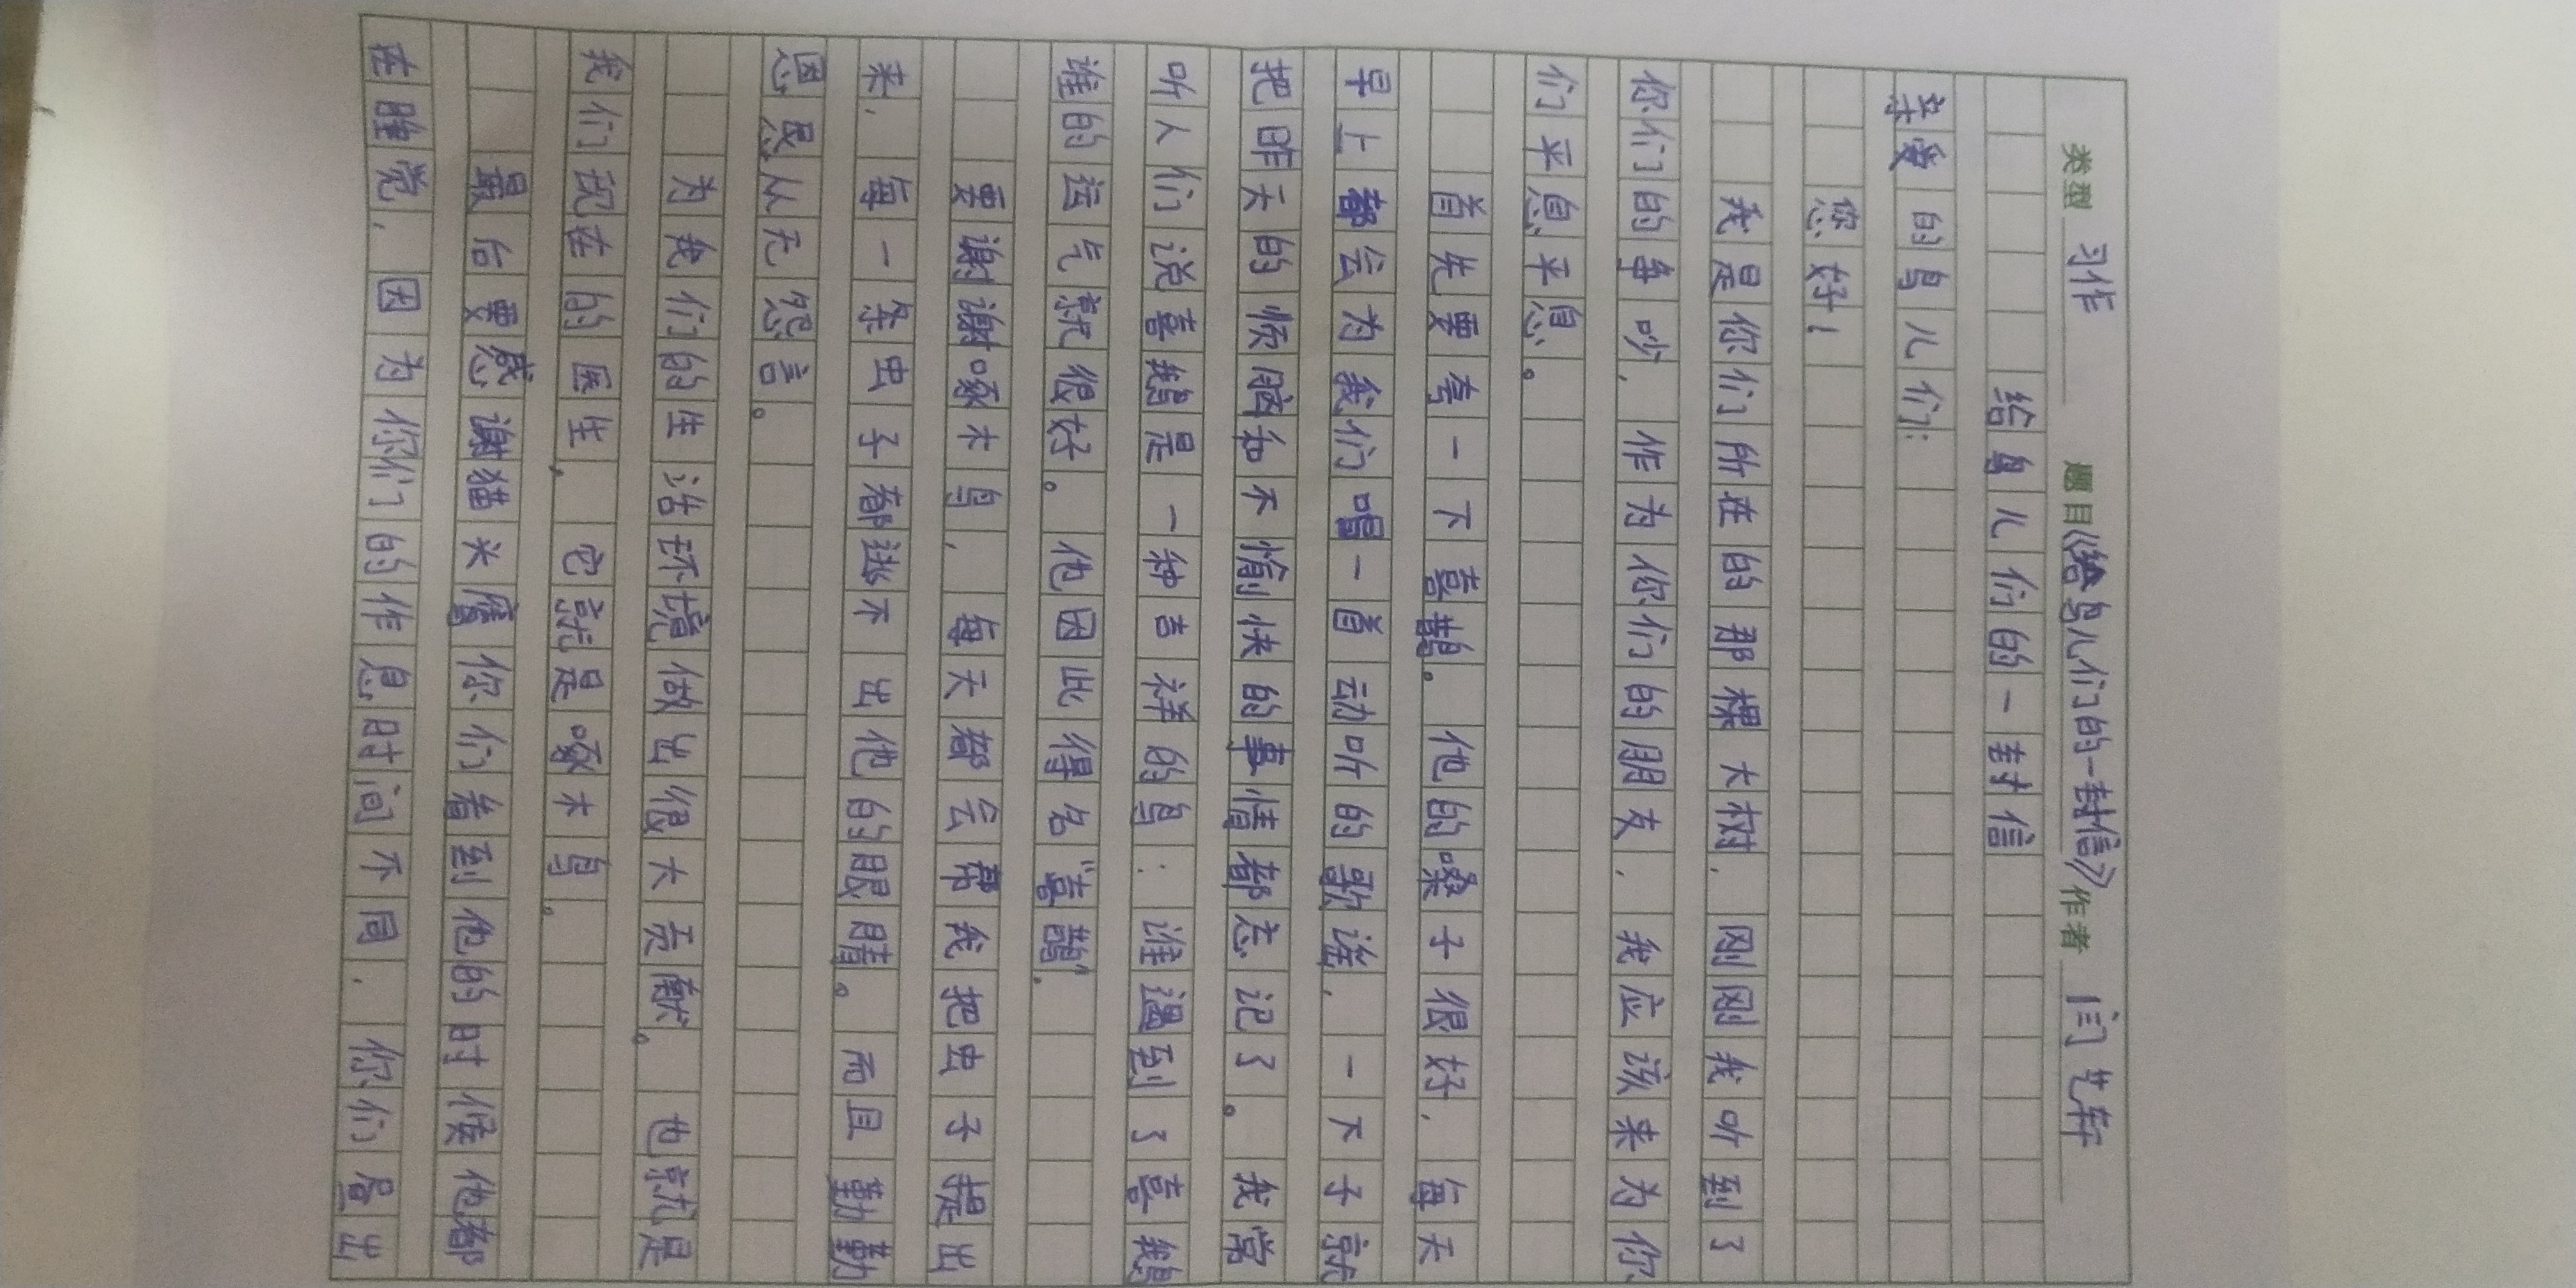 类型 习作 题目《给鸟儿们的一封信》作者 闫艺轩
给鸟儿们的一封信
亲爱的鸟儿们:
您好!
我是你们所在的那棵大树,刚刚我听到了
你们的争吵,作为你们的朋友,我应该来为你
们平息平息。
首先要夸一下喜鹊。他的嗓子很好,每天
早上都会为我们唱一首动听的歌谣,一下子就
把昨天的烦恼和不愉快的事情都忘记了。我常
听人们说喜鹊是一种吉祥的鸟:谁遇到了喜鹊
谁的运气就很好。他因此得名“喜鹊”.
要谢谢啄木鸟,每天都会帮我把虫子捉出
来,每一条虫子都逃不出他的眼睛。而且勤勤
恩恳从无怨言。
为我们的生活环境做出很大贡献。也就是
我们现在的医生,它就是啄木鸟。
最后要感谢猫头鹰你们看到他的时候他都
在睡觉,因为你们的作息时间不同,你们昼出